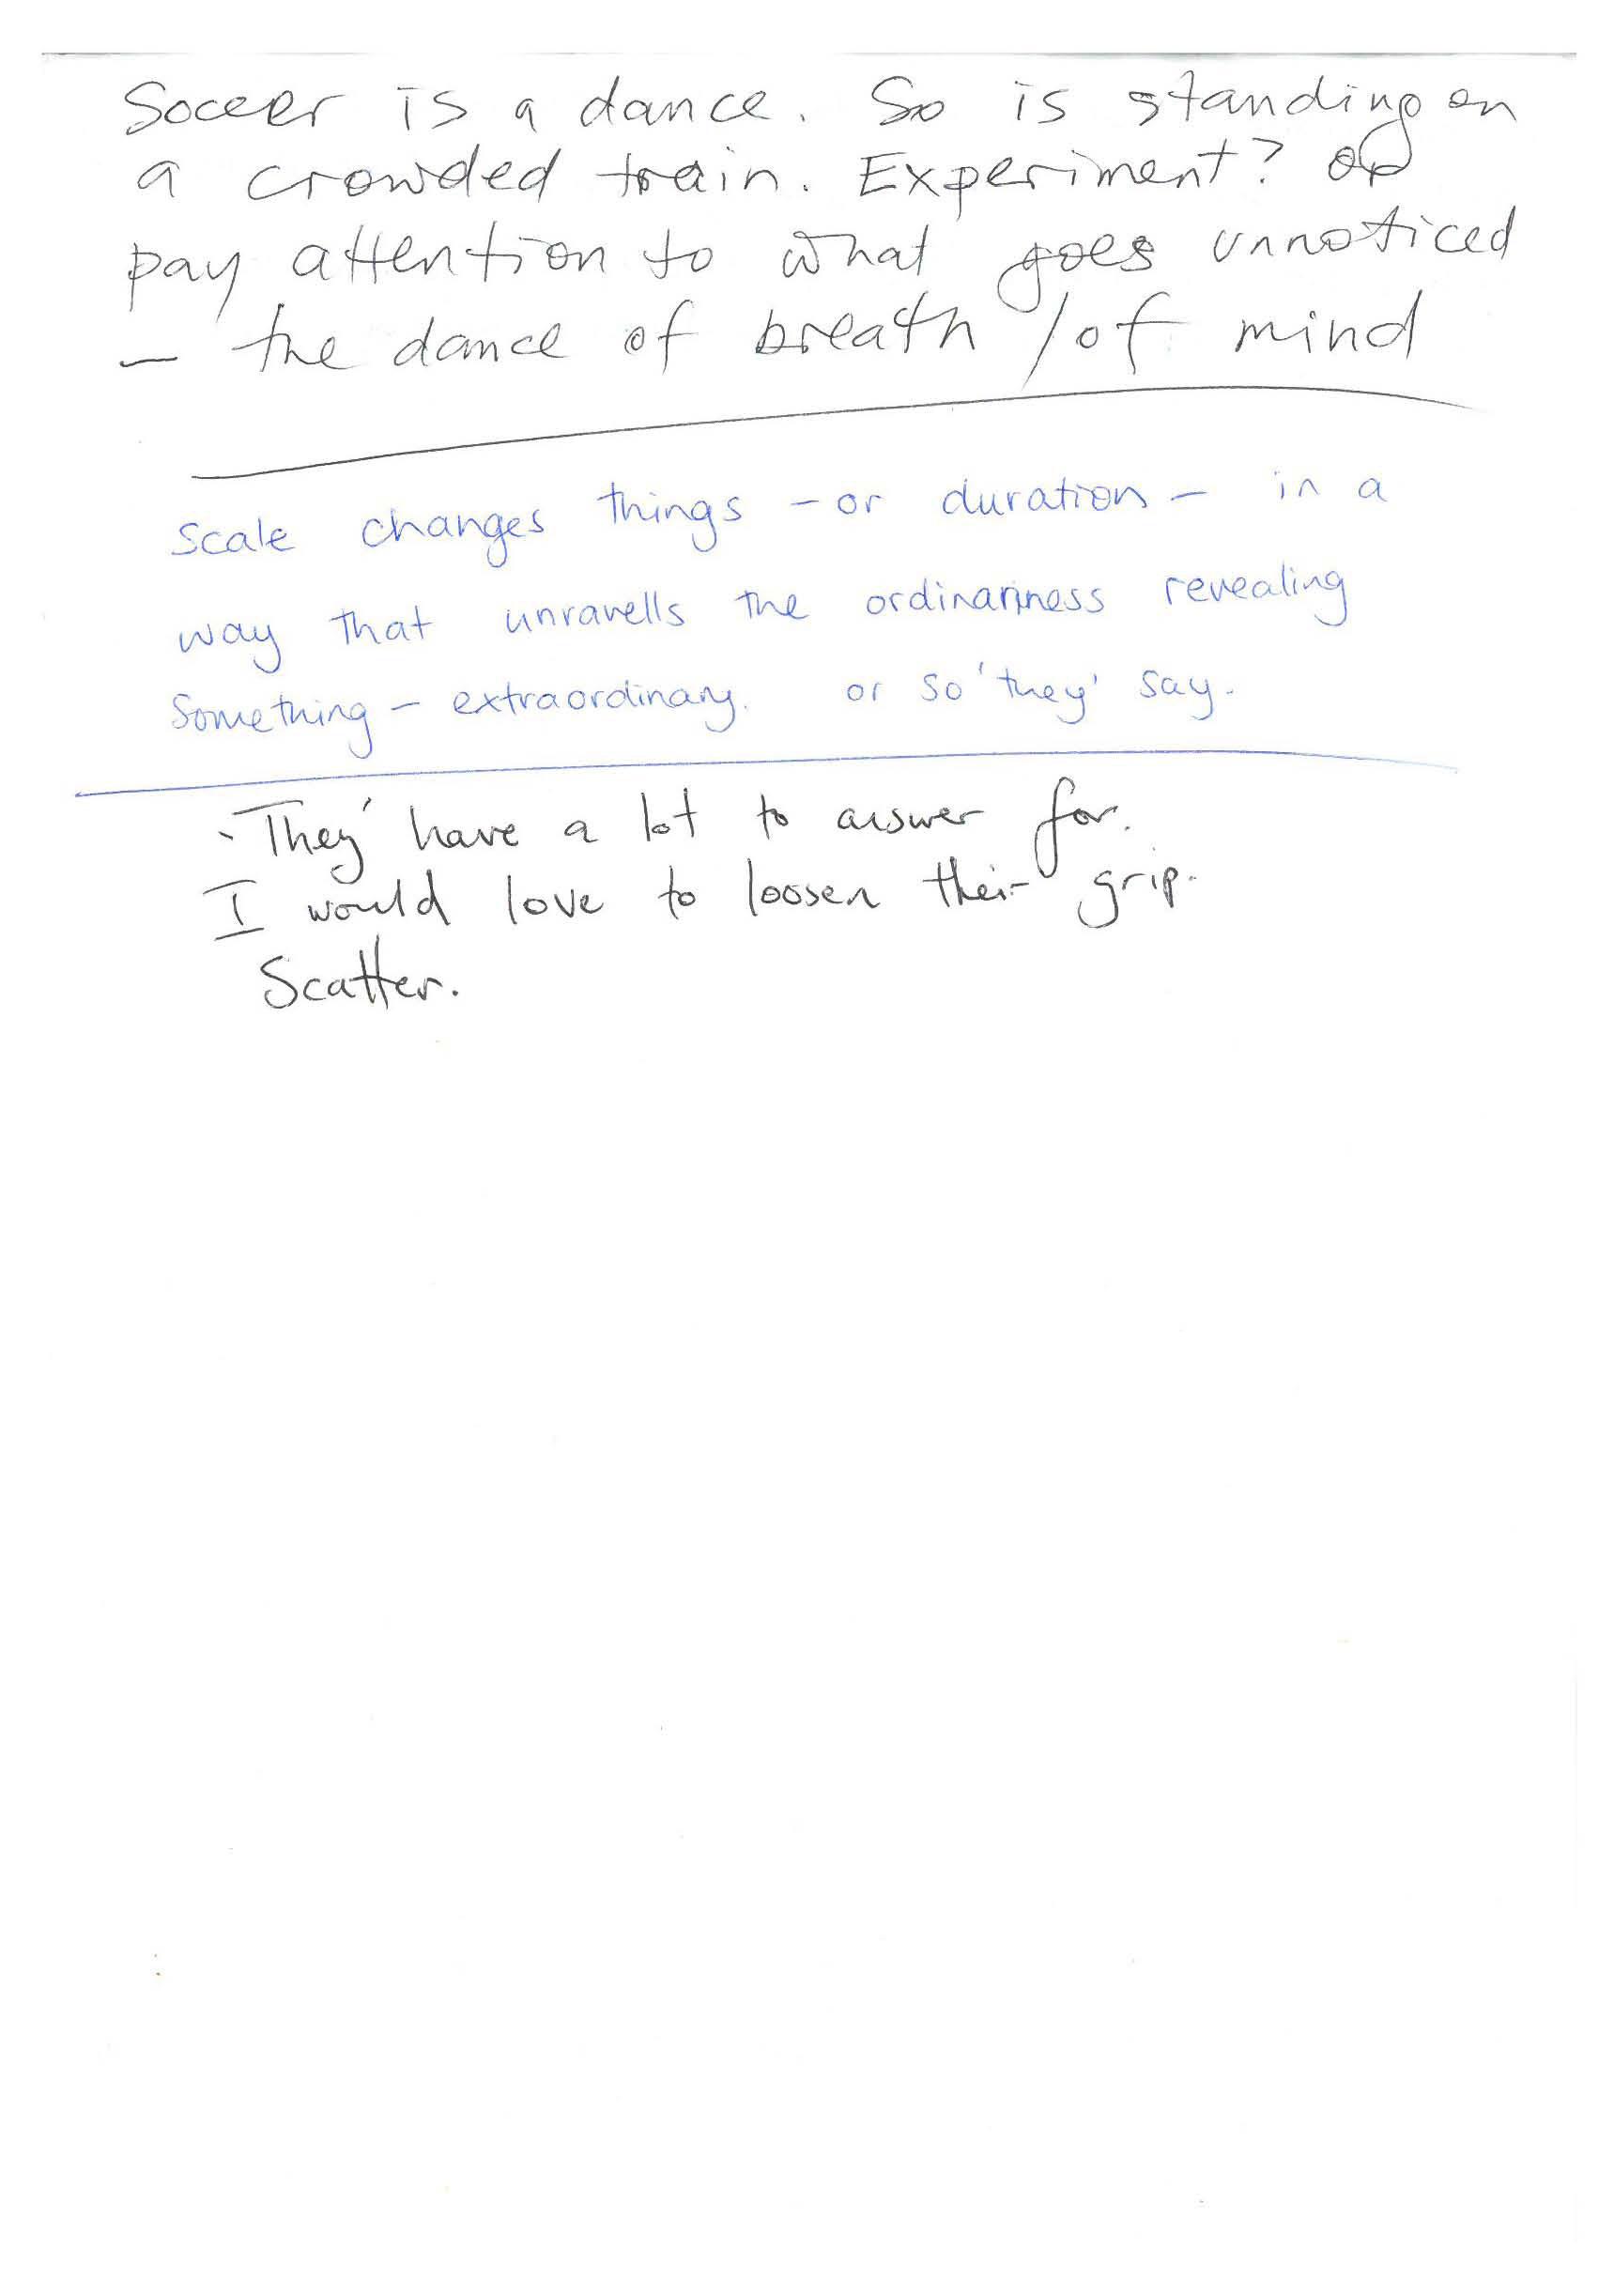 Soccer is a dance. So is standing on
a crowded train. Experiment? or
pay attention to what goes unnoticed
— the dance of breath / of mind
scale changes things - or duration - in a
way that unravells the ordinariness revealing
something - extraordinary. or so 'they' say.
'They' have a lot to answer for.
I would love to loosen their grip.
Scatter.